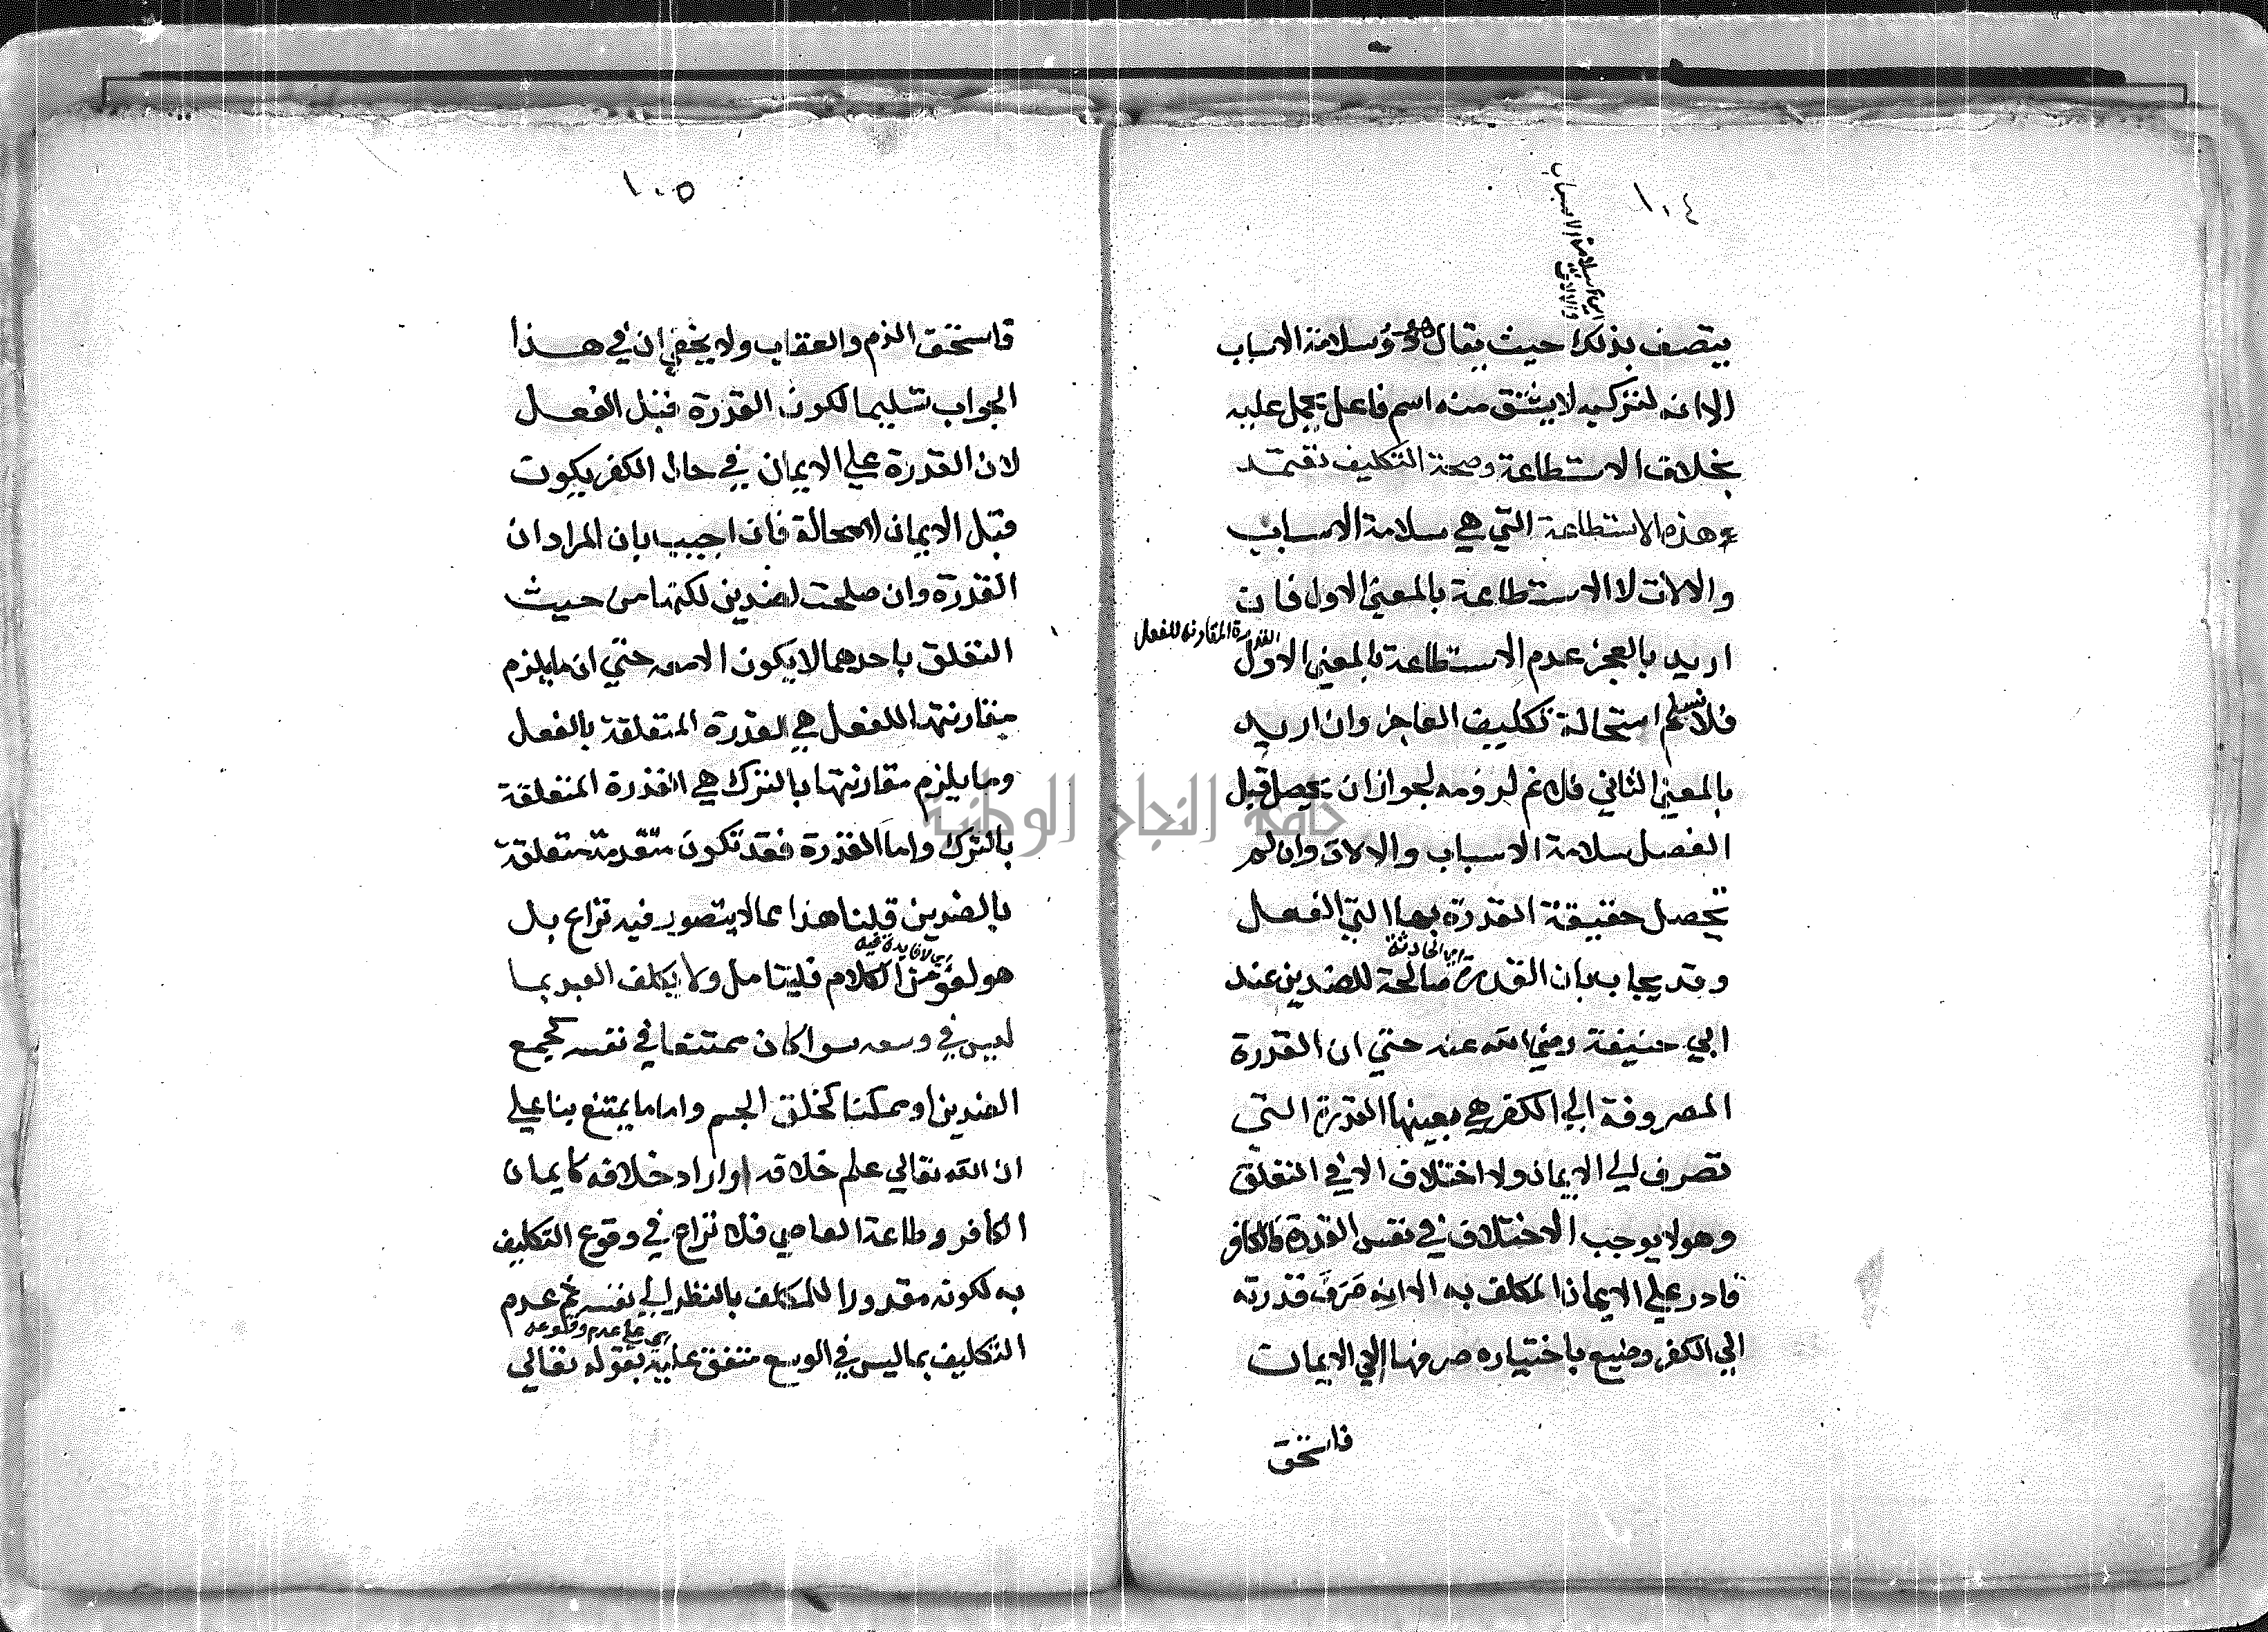 ١٠٤
اي سلامة الاسباب
والالات
يتصف بذلك حيث يقال هو ذو سلامة الاسباب
الا انه لتركبه لا يشتق منه اسم فاعل يحمل عليه
بخلاف الاستطاعة وصحة التكليف تعتمد
هذه الاستطاعة التي هي سلامة الاسباب
والالات لا الاستطاعة بالمعني الاول فان
القدرة المقارنه للفعل
اريد بالعجز عدم الاستطاعة بالمعني الاول
فلا نسلم استحالة تكليف العاجز وان اريد
بالمعني الثاني فلانم لزومه لجواز ان يحصل قبل
الفعل سلامة الاسباب والالات وان لم
تحصل حقيقة القدرة بها التي الفعل
اي الحادثة
وقد يجاب بان القدرة صالحة للضدين عند
ابي حنيفة رضي الله عنه حتي ان القدرة
المصروفة الي الكفر هي بعينها القدرة التي
تصرف الي الايمان ولا اختلاف الا في التعلق
وهو لا يوجب الاختلاف في نفس القدرة فالكافر
قادر علي الايمان المكلف به الا انه صرف قدرته
الي الكفر وضيع باختياره صرفها الي الايمان
فاستحق
جامعة النجاح الوطنية
١٠٥
فاستحق الذم والعقاب ولا يخفي ان في هذا
الجواب تسليما لكون القدرة قبل الفعل
لان القدرة علي الايمان في حال الكفر يكون
قبل الايمان لا محالة فان اجيب بان المراد ان
القدرة وان صلحت لضدين لكنها من حيث
التعلق باحدهما لا يكون الا معه حتي ان ما يلزم
مقارنتها للفعل هي القدرة المتعلقة بالفعل
وما يلزم مقارنتها بالترك هي القدرة المتعلقة
بالترك واما القدرة فقد تكون متقدمة متعلقة
بالضدين قلنا هذا مما لا يتصور فيه نزاع بل
اي لا فايدة فيه
هو لغو من الكلام فليتامل ولا يكلف العبد بما
ليس في وسعه سوا كان ممتنعا في نفسه كجمع
الضدين او ممكنا كخلق الجسم واما ما يمتنع بنا علي
ان الله تعالي علم خلافه او اراد خلافه كايمان
الكافر وطاعة العاصي فلا نزاع في وقوع التكليف
به لكونه مقدورا للمكلف بالنظر الي نفسه ثم عدم
اي علي عدم وقوعه
التكليف بما ليس في الوسع متفق عليه بقوله تعالي